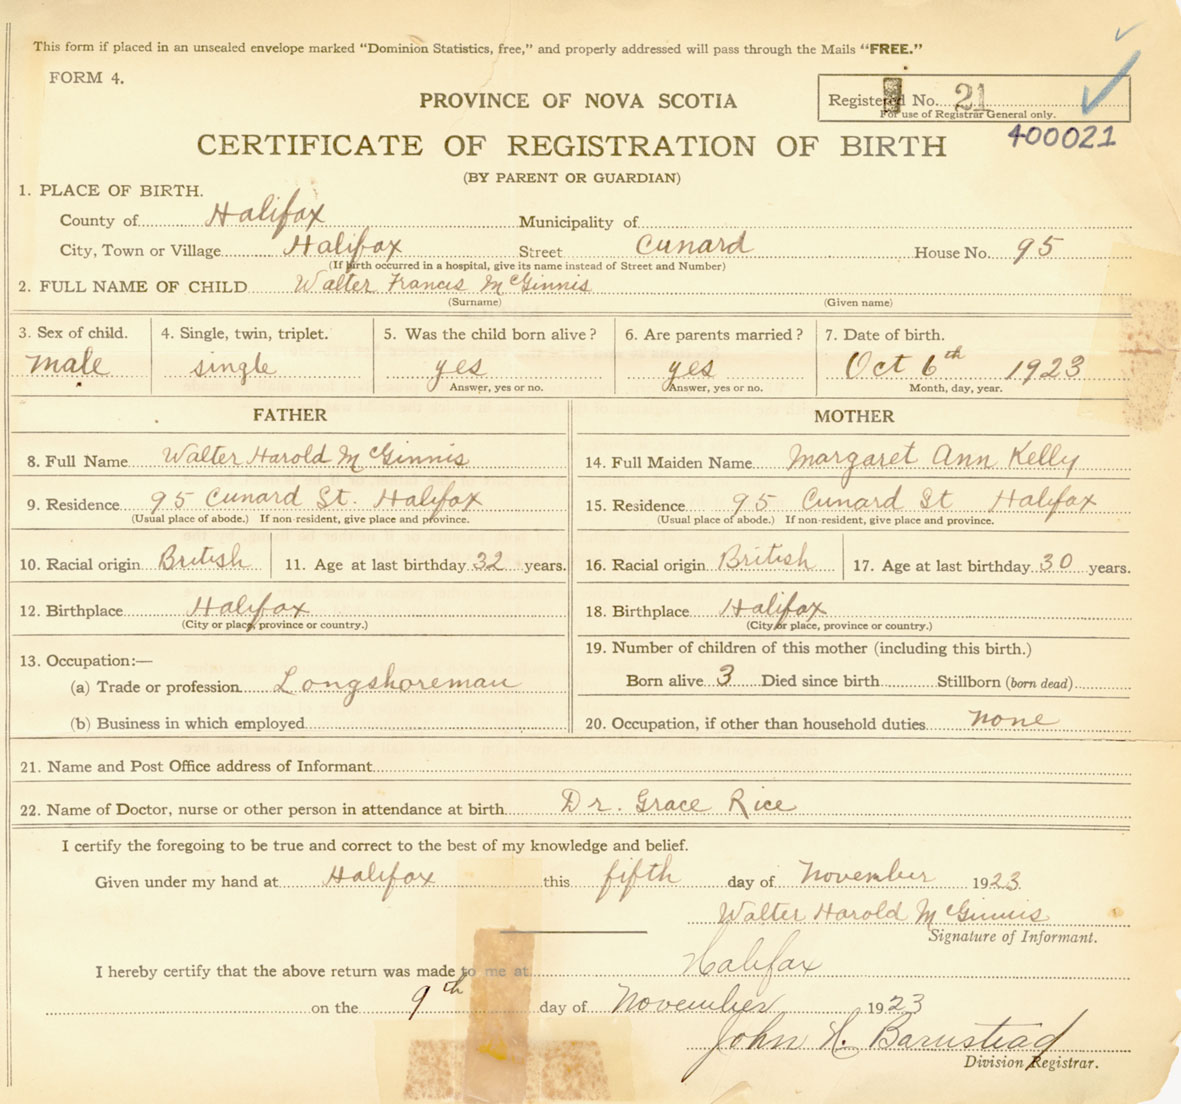 This form if placed in an unsealed envelope marked "Dominion Statistics, free," and properly addressed will pass through the Mails "FREE."
FORM 4.
Registered No. 21
For use of Registrar General only.
PROVINCE OF NOVA SCOTIA
400021
CERTIFICATE OF REGISTRATION OF BIRTH
(BY PARENT OR GUARDIAN)
1. PLACE OF BIRTH.
County of Halifax Municipality of
City, Town or Village Halifax Street Cunard House No. 95
(If birth occurred in a hospital, give its name instead of Street and Number)
2. FULL NAME OF CHILD Walter Francis McGinnis
(Surname) (Given name)
3. Sex of child. 4. Single, twin, triplet. 5. Was the child born alive? 6. Are parents married? 7. Date of birth.
male single yes yes Oct 6th 1923
Answer, yes or no. Answer, yes or no. Month, day, year.
FATHER MOTHER
8. Full Name Walter Harold McGinnis 14. Full Maiden Name Margaret Ann Kelly
9. Residence 95 Cunard St. Halifax 15. Residence 95 Cunard St Halifax
(Usual place of abode.) If non-resident, give place and province. (Usual place of abode.) If non-resident, give place and province.
10. Racial origin British 11. Age at last birthday 32 years. 16. Racial origin British 17. Age at last birthday 30 years.
12. Birthplace Halifax 18. Birthplace Halifax
(City or place, province or country.) (City or place, province or country.)
13. Occupation:— 19. Number of children of this mother (including this birth.)
(a) Trade or profession Longshoreman Born alive 3 Died since birth Stillborn (born dead)
(b) Business in which employed 20. Occupation, if other than household duties none
21. Name and Post Office address of Informant
22. Name of Doctor, nurse or other person in attendance at birth Dr. Grace Rice
I certify the foregoing to be true and correct to the best of my knowledge and belief.
Given under my hand at Halifax this fifth day of November 1923
Walter Harold McGinnis
Signature of Informant.
I hereby certify that the above return was made to me at Halifax
on the 9th day of November 1923
John H. Barnstead
Division Registrar.